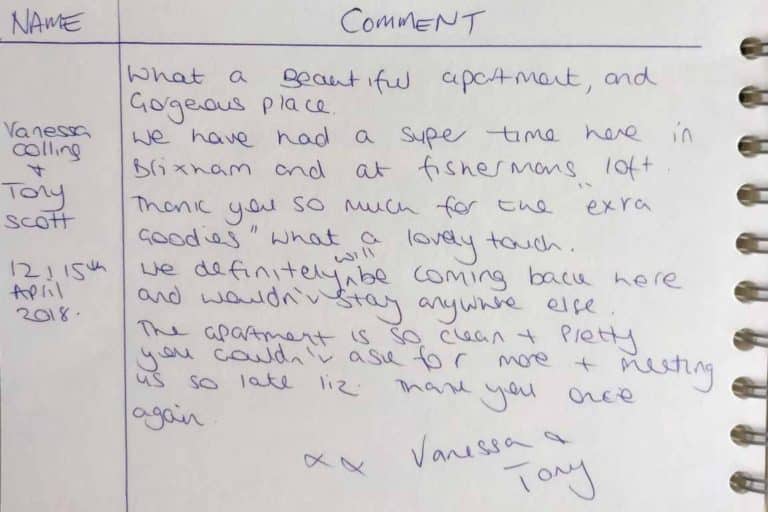 NAME COMMENT
What a Beautiful apartment, and
Gorgeous place.
Vanessa
Colling
+
Tony
Scott
12, 15th
April
2018.
We have had a super time here in
Brixham and at fishermans loft.
Thank you so much for the "extra
Goodies" what a lovely touch.
We definitely will be coming back here
and wouldn't stay anywhere else.
The apartment is so clean + Pretty
you couldn't ask for more + meeting
us so late liz. Thank you once
again.
xx Vanessa &
Tony